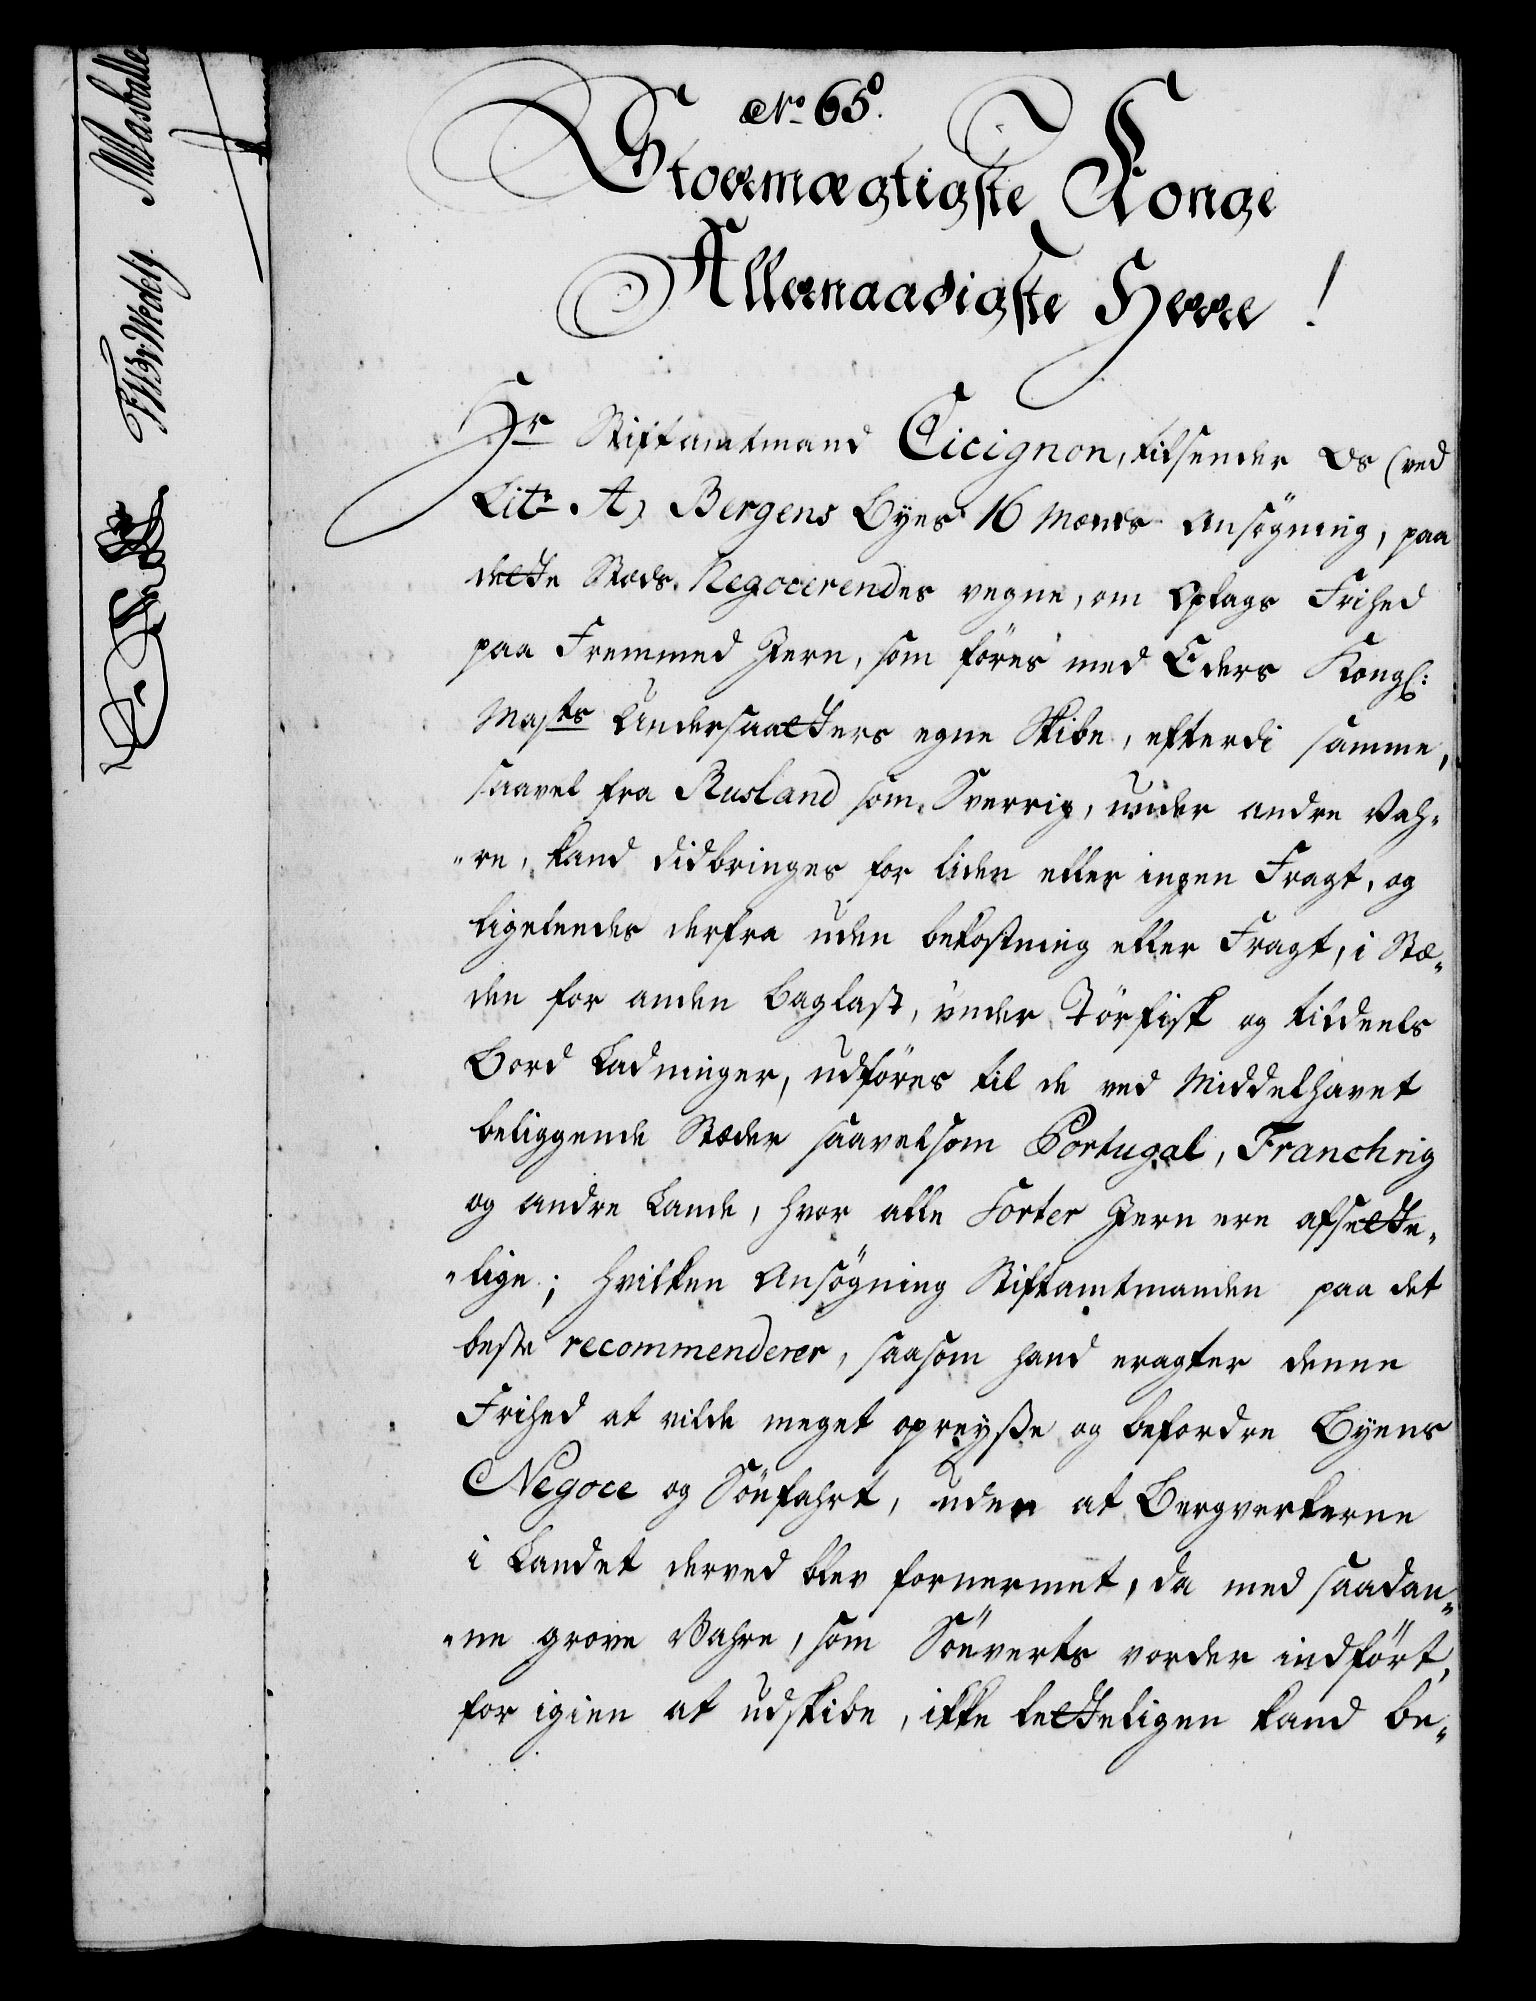 No. 65.
Stoermægtigste Konge
Allernaadigste Herre!
Hr Stiftamtmand Cicignon, tilsender os (ved
Litr. A) Bergens Byes 16 Mænds Ansögning, paa
dette Stæds Negocerendes vegne, om Oplags Frihed
paa Fremmed Jern, som föres med Eders Kongl:
Majts Undersaatters egne Skibe, efterdi samme,
saavel fra Rusland som Sverrig, under andre Vah-
"re, kand didbringes for liden eller ingen Fragt, og
ligeleedes derfra uden bekostning eller Fragt, i Stæ-
den for anden Baglast, under Törfisk og tildeels
Bord Ladninger, udföres til de ved Middelhavet
beliggende Stæder saavelsom Portugal, Franchrig
og andre Lande, hvor alle Sorter Jern ere afsætte-
"lige; hvilken Ansögning Stiftamtmanden paa det
beste recommenderer, saasom hand eragter denne
Frihed at vilde meget opreyße og befordre Byens
Negoce og Söefahrt, uden at Bergverkerne
i Landet derved blev fornermet, da med saadan-
"ne grove Vahre, som Söeverts vorder indfört,
for igien at udskibe, ikke letteligen kand be-